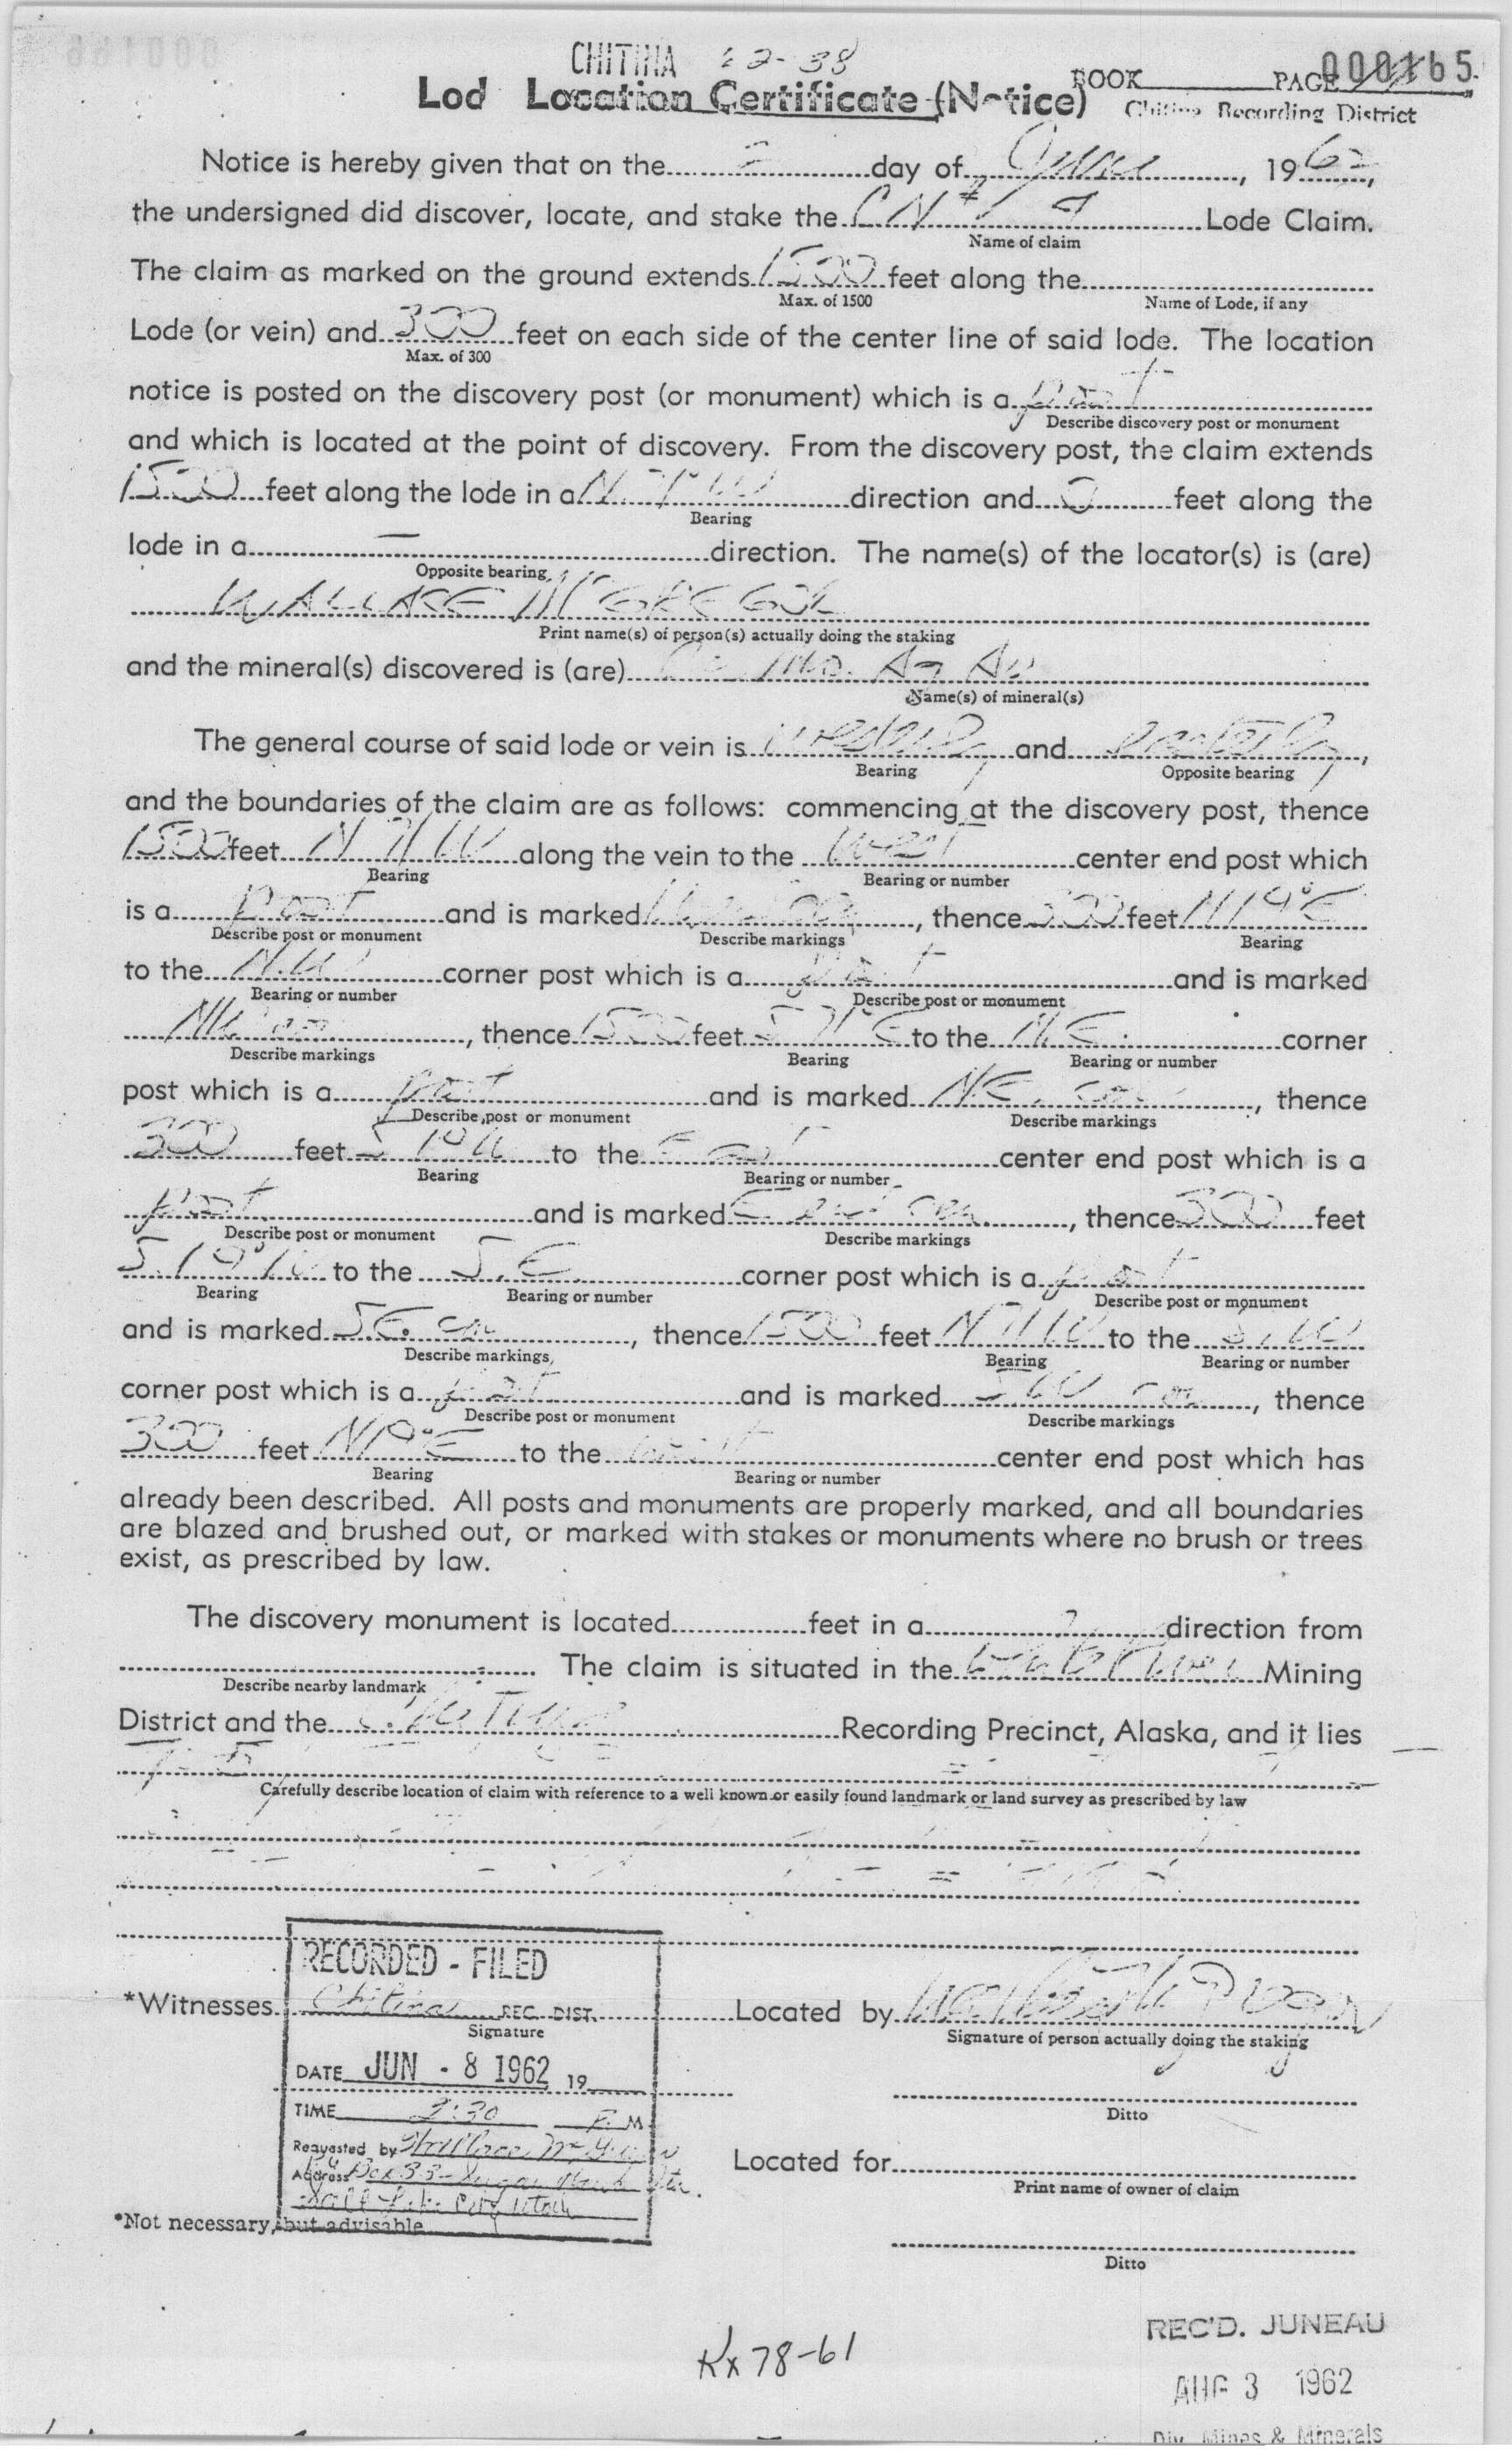 CHITINA 62-38
BOOK PAGE 000165
Lod Location Certificate (Notice)
Chitina Recording District
Notice is hereby given that on the 2 day of June, 1962,
the undersigned did discover, locate, and stake the CN # 9 Lode Claim.
Name of claim
The claim as marked on the ground extends 1500 feet along the
Max. of 1500 Name of Lode, if any
Lode (or vein) and 300 feet on each side of the center line of said lode. The location
Max. of 300
notice is posted on the discovery post (or monument) which is a post
Describe discovery post or monument
and which is located at the point of discovery. From the discovery post, the claim extends
1500 feet along the lode in a N 71 W direction and 0 feet along the
Bearing
lode in a — direction. The name(s) of the locator(s) is (are)
Opposite bearing
WALLACE McGREGOR
Print name(s) of person(s) actually doing the staking
and the mineral(s) discovered is (are) Mo. Ag Au
Name(s) of mineral(s)
The general course of said lode or vein is westerly and easterly,
Bearing Opposite bearing
and the boundaries of the claim are as follows: commencing at the discovery post, thence
1500 feet N 71 W along the vein to the West center end post which
Bearing Bearing or number
is a post and is marked, thence 300 feet N 19° E
Describe post or monument Describe markings Bearing
to the N.W corner post which is a post and is marked
Bearing or number Describe post or monument
NW cor, thence 1500 feet S 71 E to the N.E. corner
Describe markings Bearing Bearing or number
post which is a post and is marked N.E. cor, thence
Describe post or monument Describe markings
300 feet S 19 W to the East center end post which is a
Bearing Bearing or number
post and is marked E. cen., thence 300 feet
Describe post or monument Describe markings
S 19° W to the S.E. corner post which is a post
Bearing Bearing or number Describe post or monument
and is marked SE. cor, thence 1500 feet N 71 W to the S.W
Describe markings Bearing Bearing or number
corner post which is a post and is marked SW cor, thence
Describe post or monument Describe markings
300 feet N 19° E to the west center end post which has
Bearing Bearing or number
already been described. All posts and monuments are properly marked, and all boundaries
are blazed and brushed out, or marked with stakes or monuments where no brush or trees
exist, as prescribed by law.
The discovery monument is located feet in a direction from
The claim is situated in the Mining
Describe nearby landmark
District and the Chitina Recording Precinct, Alaska, and it lies
Carefully describe location of claim with reference to a well known or easily found landmark or land survey as prescribed by law
RECORDED - FILED
*Witnesses Chitina REC. DIST. Located by Wallace McGregor
Signature Signature of person actually doing the staking
DATE JUN - 8 1962 19
Ditto
TIME 2:30 P. M
Requested by Wallace McGregor
Located for
Address Box 33 - Sugar House Sta.
Print name of owner of claim
Salt Lake City Utah
*Not necessary, but advisable
Ditto
Kx 78-61
REC'D. JUNEAU
AUG 3 1962
Div. Mines & Minerals